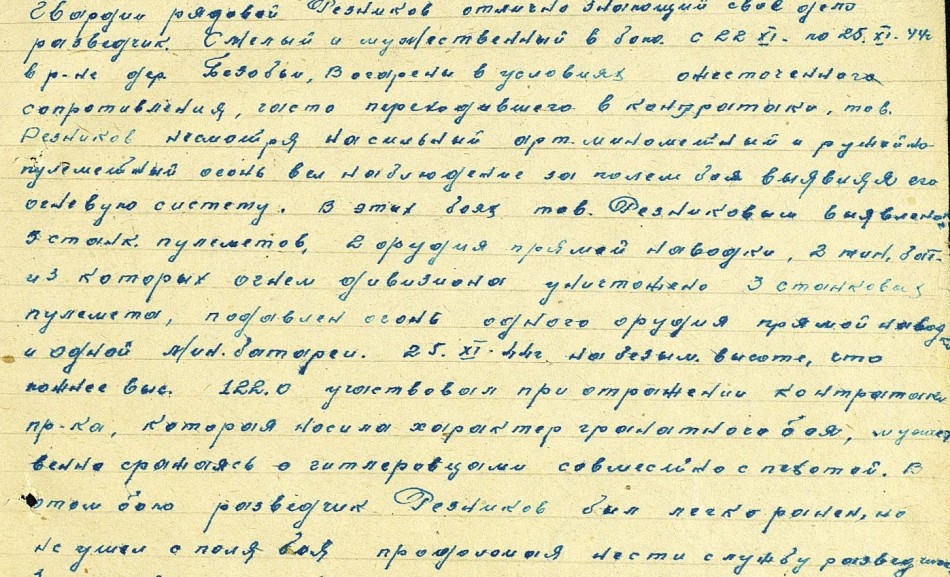 Гвардии рядовой Резников отлично знающий своё дело
разведчик. Смелый и мужественный в бою. с 22 XI. по 25. XI. 44г
в р-не дер. Безобьи, Вочарены в условиях ожесточенного
сопротивления, часто переходившего в контратаки, тов.
Резников несмотря на сильный арт-минометный и ружейно-
пулеметный огонь вел наблюдение за полем боя выявляя его
огневую систему. В этих боях тов. Резниковым выявлено
5 станк. пулеметов, 2 орудия прямой наводки, 2 мин. бат.
из которых огнем дивизиона уничтожено 3 станковых
пулемета, подавлен огонь одного орудия прямой навод
и одной мин. батареи. 25. XI-44г. на безым. высоте, что
южнее выс. 122.0 участвовал при отражении контратаки
пр-ка, которая носила характер гранатного боя, мужест
венно сражаясь с гитлеровцами совместно с пехотой. В
этом бою разведчик Резников был легко ранен, но
не ушел с поля боя продолжая нести службу разведчика